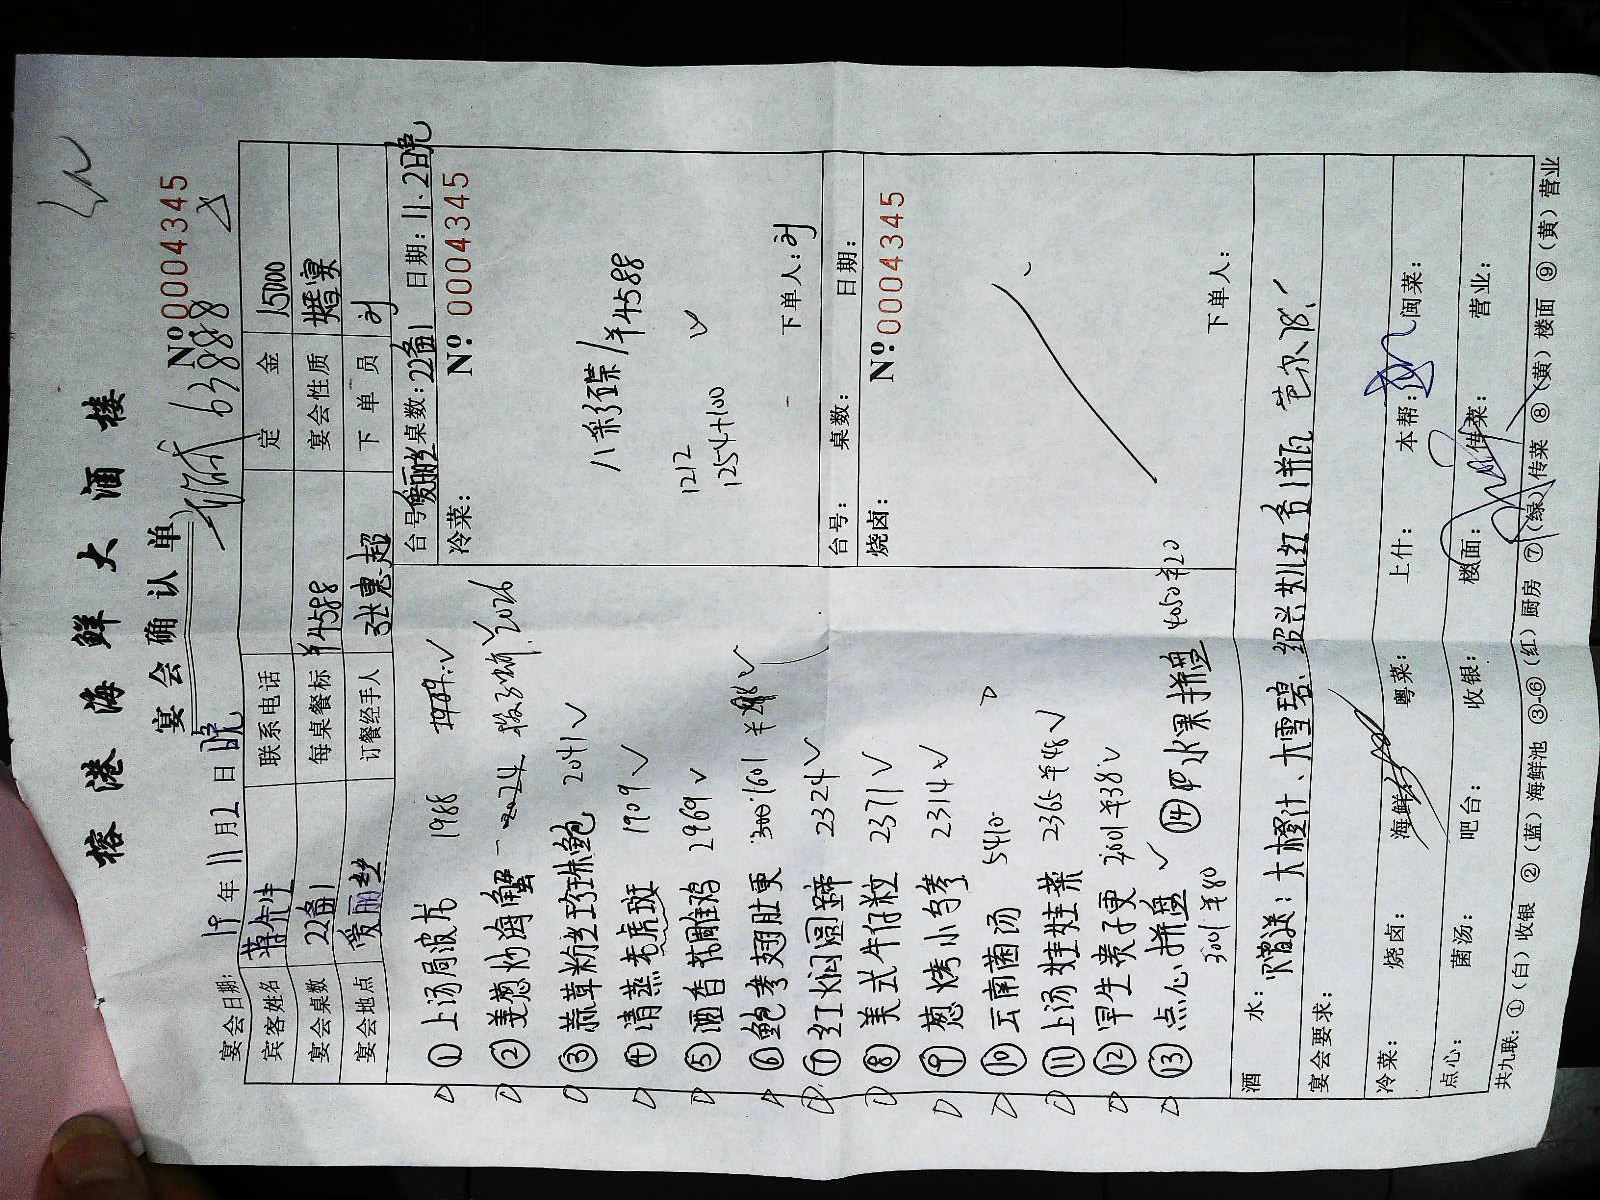 榕港海鲜大酒楼
宴会确认单
№0004345
63888
宴会日期: 19年11月2日晚
宾客姓名 蒋先生 联系电话 定金 15000
宴会桌数 22备1 每桌餐标 ¥4588 宴会性质 婚宴
宴会地点 爱丽丝 订餐经手人 张惠超 下单员
台号 爱丽丝 桌数: 22备1 日期: 11.2日晚
冷菜: №: 0004345
八彩碟/¥4588
1212
1254+100
下单人:
台号: 桌数: 日期:
烧卤: №: 0004345
下单人:
① 上汤局波龙 1988
② 姜葱炒海蟹 2026
③ 蒜蓉粉丝珍珠鲍 2041
④ 清蒸老虎斑 1909
⑤ 酒香花雕鸡 2969
⑥ 鲍参翅肚更 1601
⑦ 红焖圆蹄 2324
⑧ 美式牛仔粒 2371
⑨ 葱烤小乌参 2314
⑩ 云南菌汤 5410
⑪ 上汤娃娃菜 2365 ¥48
⑫ 早生贵子更 2201 ¥38
⑬ 点心拼盘 3001 ¥80
⑭ 水果拼盘 4050 ¥20
酒水: 赠送: 大橙汁、大雪碧、绍兴女儿红各1瓶
宴会要求:
冷菜: 烧卤: 海鲜: 粤菜: 上什: 本帮: 闽菜:
点心: 菌汤: 吧台: 收银: 楼面: 传菜: 营业:
共九联: ①(白)收银 ②(蓝)海鲜池 ③-⑥(红)厨房 ⑦(绿)传菜 ⑧(黄)楼面 ⑨(黄)营业